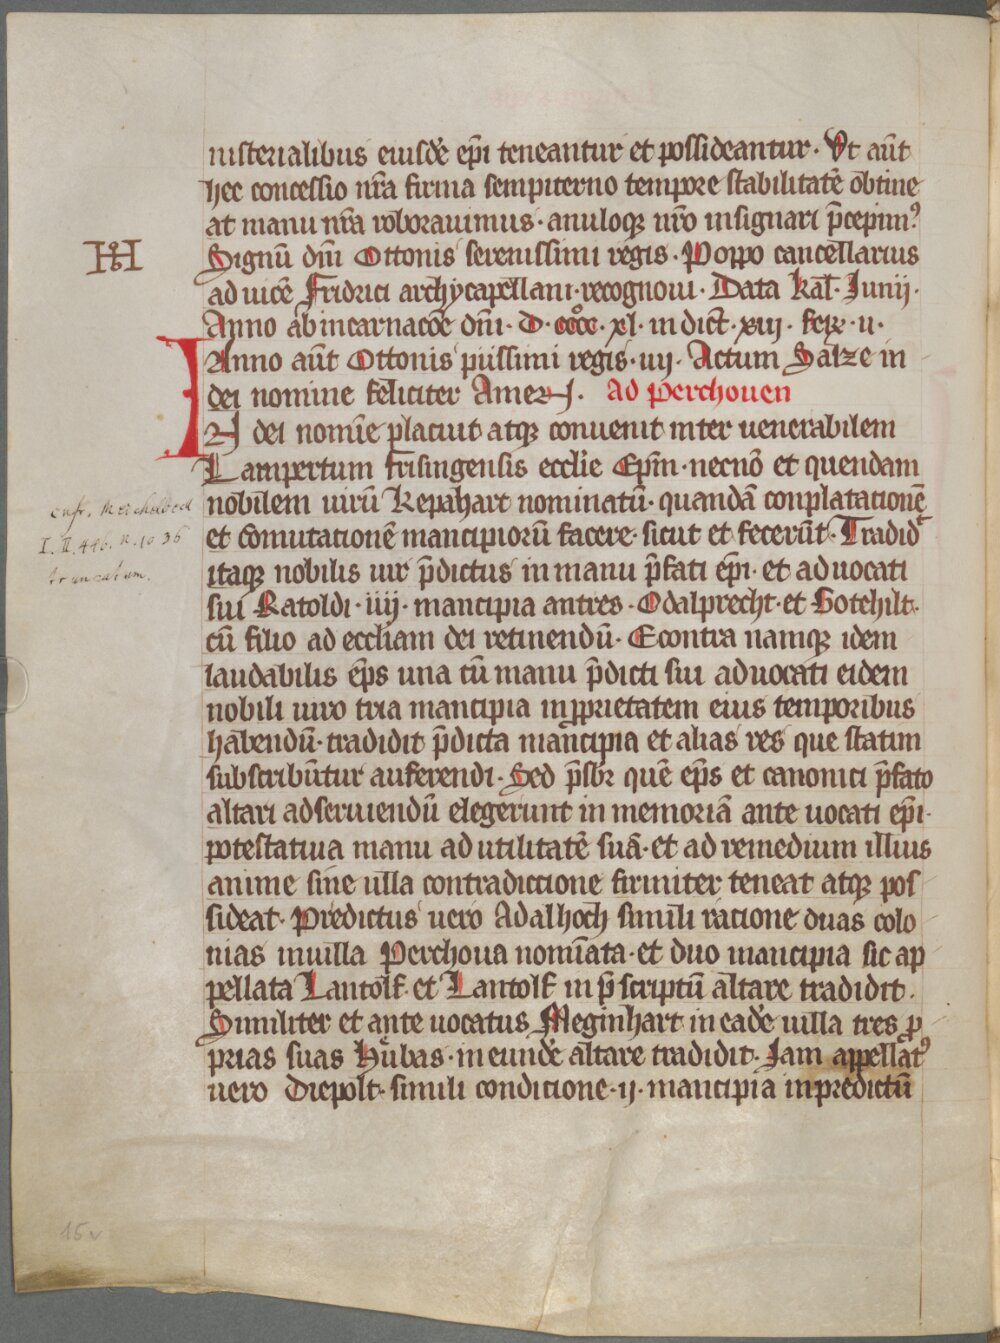 nisterialibus eiusdē ep̄i teneantur et possideantur · Vt aūt
hec concessio nr̄a firma sempiterno tempore stabilitatē obtine
at manu nr̄a roborauimus · anuloqꝫ nr̄o insignari p̄cepimꝰ
Signū dn̄i Ottonis serenissimi regis · Poppo cancellarius
ad uicē Fridrici archycapellani · recognoui · Data kal̄ · Junij ·
Anno ab incarnacōe dn̄i · D · cccc · xl · indict̄ · xiii · feꝶ · ii ·
Anno aūt Ottonis piissimi regis · iiij · Actum Salze in
dei nomine feliciter Amen · Ad Perchouen
IN dei nomīe placuit atqꝫ conuenit inter uenerabilem
Lampertum Frisingensis ecclie Ep̄m · necnō et quendam
nobilem uirū Kepahart nominatū · quandā conplatationē
et cōmutationē mancipiorū facere · sicut et fecerūt · Tradid̄
itaqꝫ nobilis uir p̄dictus in manu p̄fati ep̄i · et aduocati
sui Ratoldi · iiij · mancipia antres · Odalprecht · et Gotehilt ·
cū filio ad eccliam dei retinendū · Econtra namqꝫ idem
laudabilis ep̄s una cū manu p̄dicti sui aduocati eidem
nobili uiro tria mancipia in ꝓprietatem eius temporibus
habendū · tradidit p̄dicta mancipia et alias res que statim
subscribūtur auferendi · Sed p̄sbr quē ep̄s et canonici p̄fato
altari ad seruiendū elegerunt in memoriā ante uocati ep̄i ·
potestatiua manu ad utilitatē suā · et ad remedium illius
anime sine ulla contradictione firmiter teneat atqꝫ pos
sideat · Predictus uero Adalhoch simili racione duas colo
nias in uilla Perchoua nomīata · et duo mancipia sic ap
pellata Lantolf · et Lantolf in p̄scriptū altare tradidit ·
Similiter et ante uocatus Meginhart in eadē uilla tres ꝓ
prias suas Hůbas · in eundē altare tradidit · Jam appellatꝰ
uero Diepolt · simili condicione · ij · mancipia in predictū
confr. Meichelbeck
I. II. 446. n. 1036
truncatum.
15v